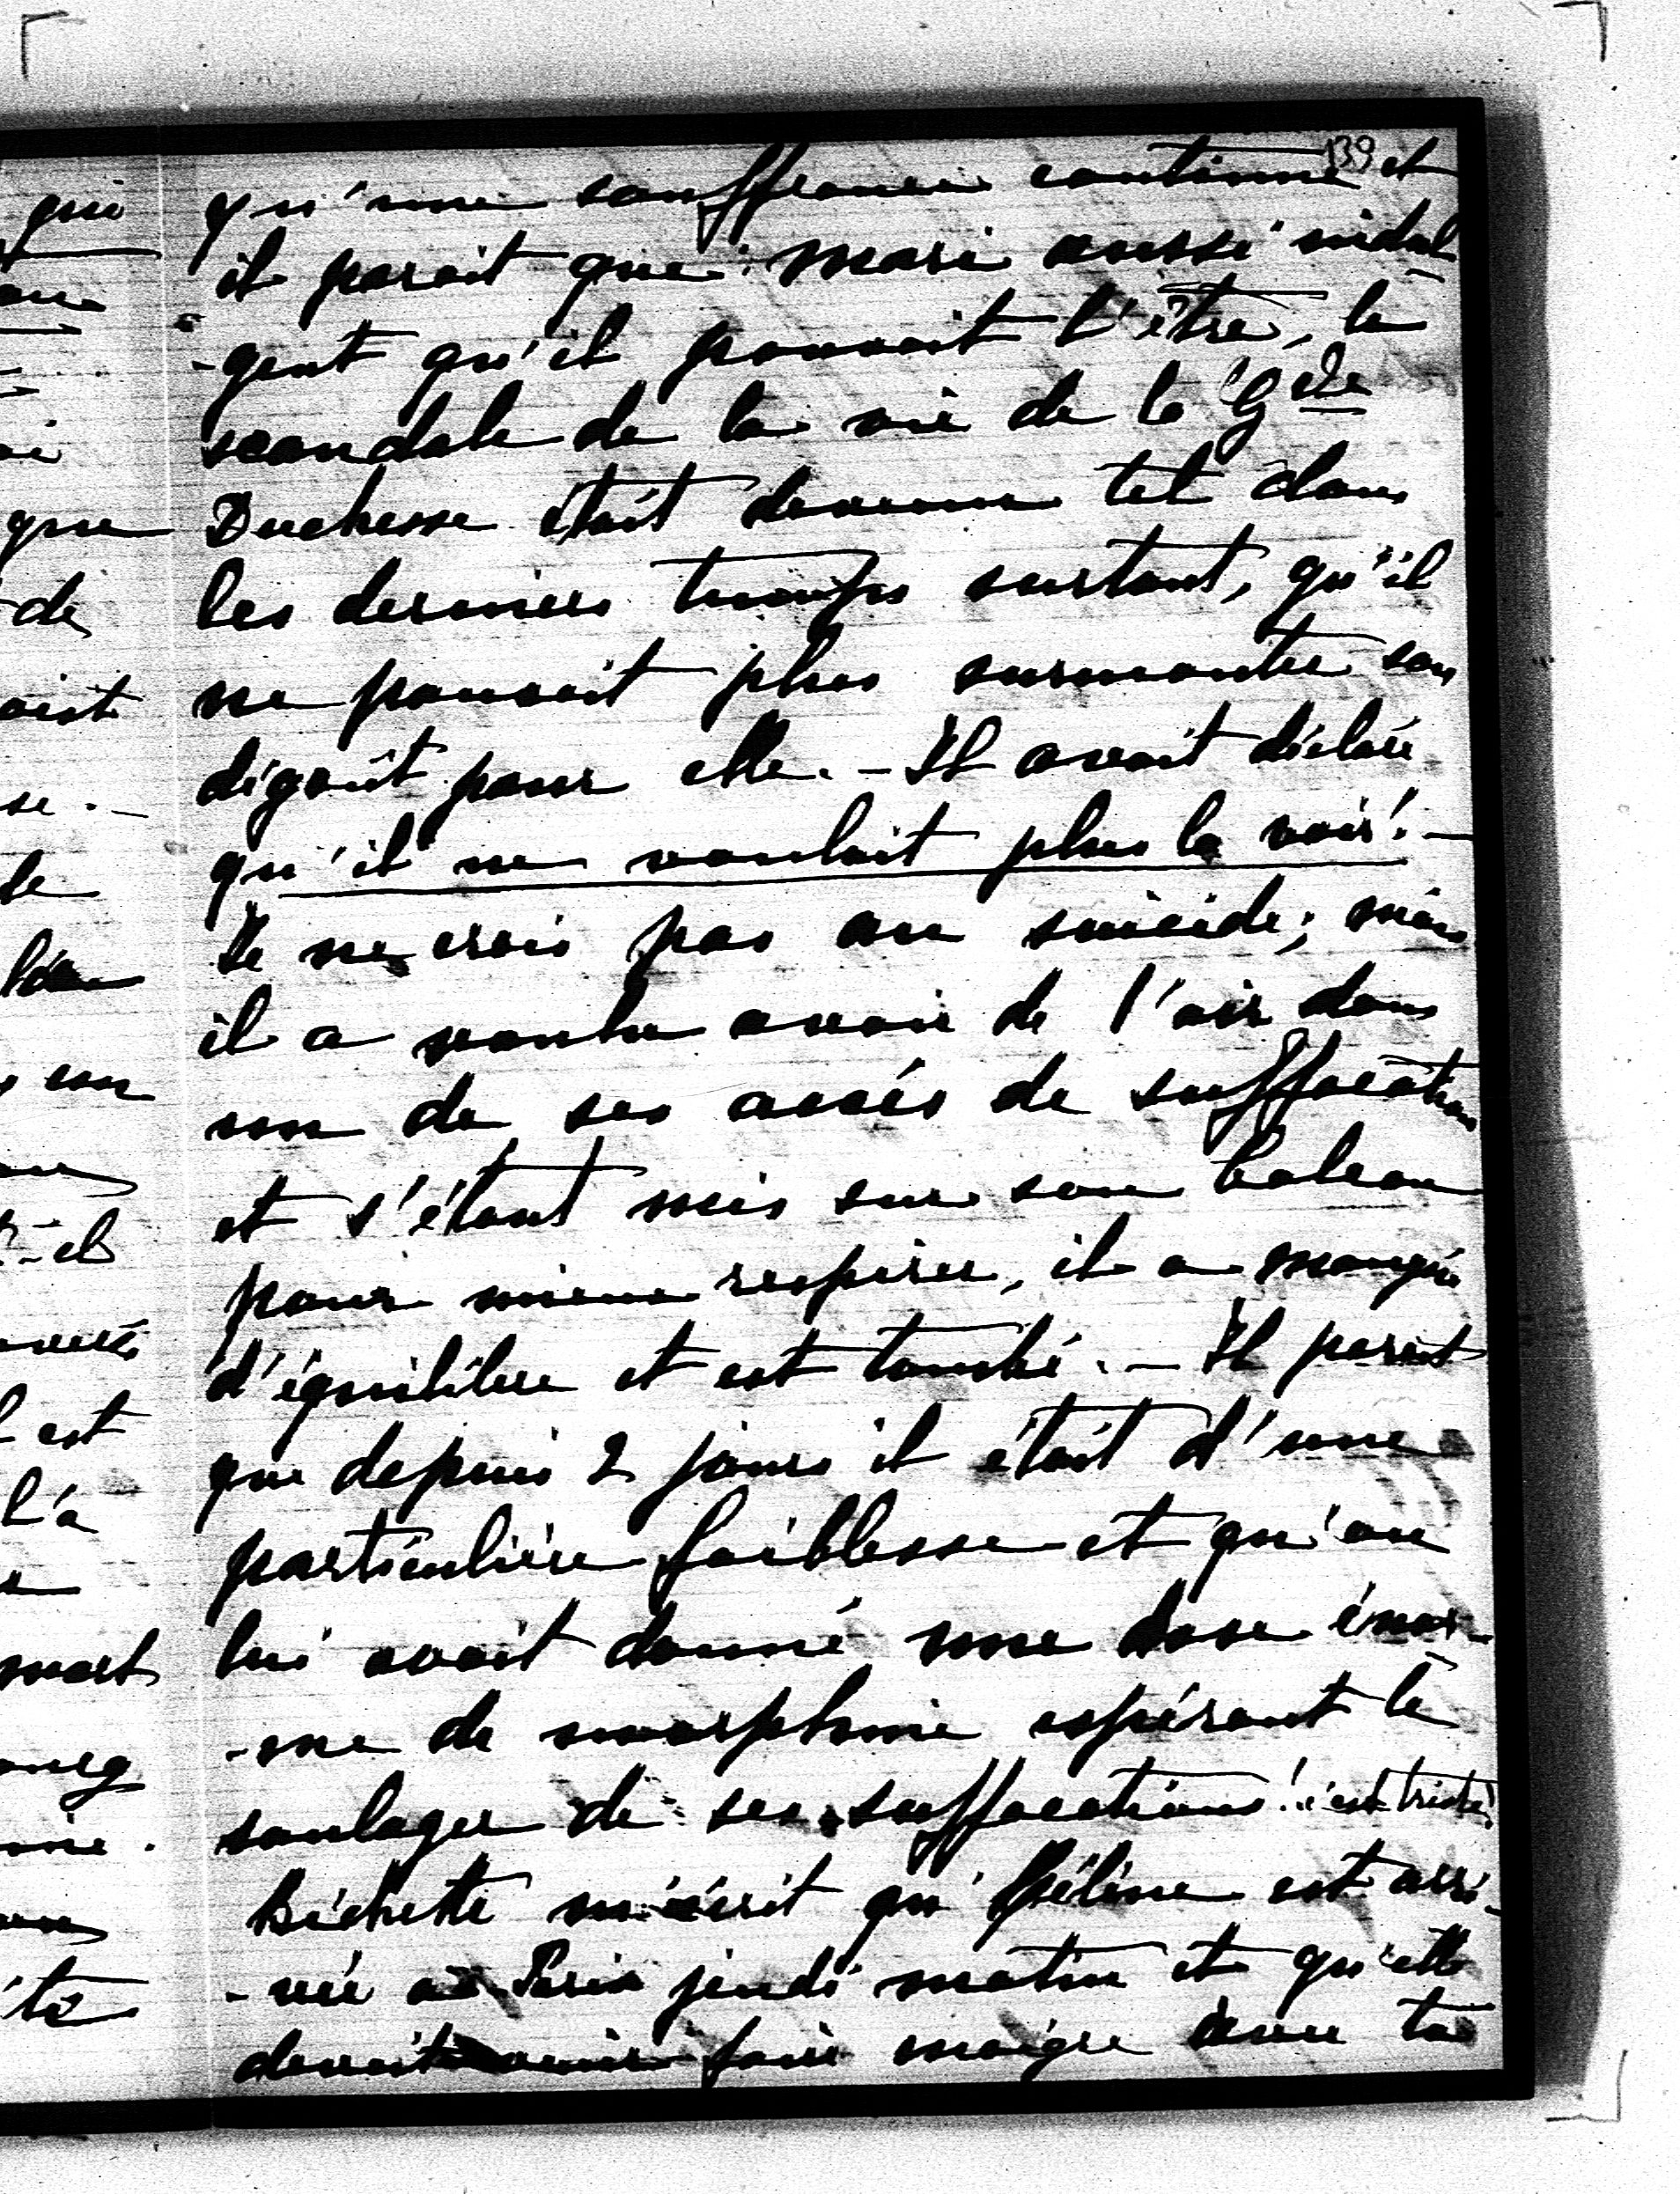 139
qu'une souffrance continue et
il parait que mari aussi indul
-gent qu'il pouvait l'être, le
scandale de la vie de la Gde
Duchesse était devenu tel dans
les derniers temps surtout, qu'il
ne pouvait plus surmonter son
dégoût pour elle. - Il avait déclaré
qu'il ne voulait plus la voir! -
Je ne crois pas au suicide; mais
il a voulu avoir de l'air dans
un de ses accès de suffocation
et s'étant mis sur son balcon
pour mieux respirer, il a manqué
d'équilibre et est tombé. - Il parait
que depuis 2 jours il était d'une
particulière faiblesse et qu'on
lui avait donné une dose énor-
-me de morphine espérant le
soulager de ses suffocations! c'est triste!
Bichette m'écrit qu'Hélène est arri-
-vée à Paris jeudi matin et qu'elle
devait venir faire maigre avec ta
qui
que
de
se. -
un
est
l'a
mort